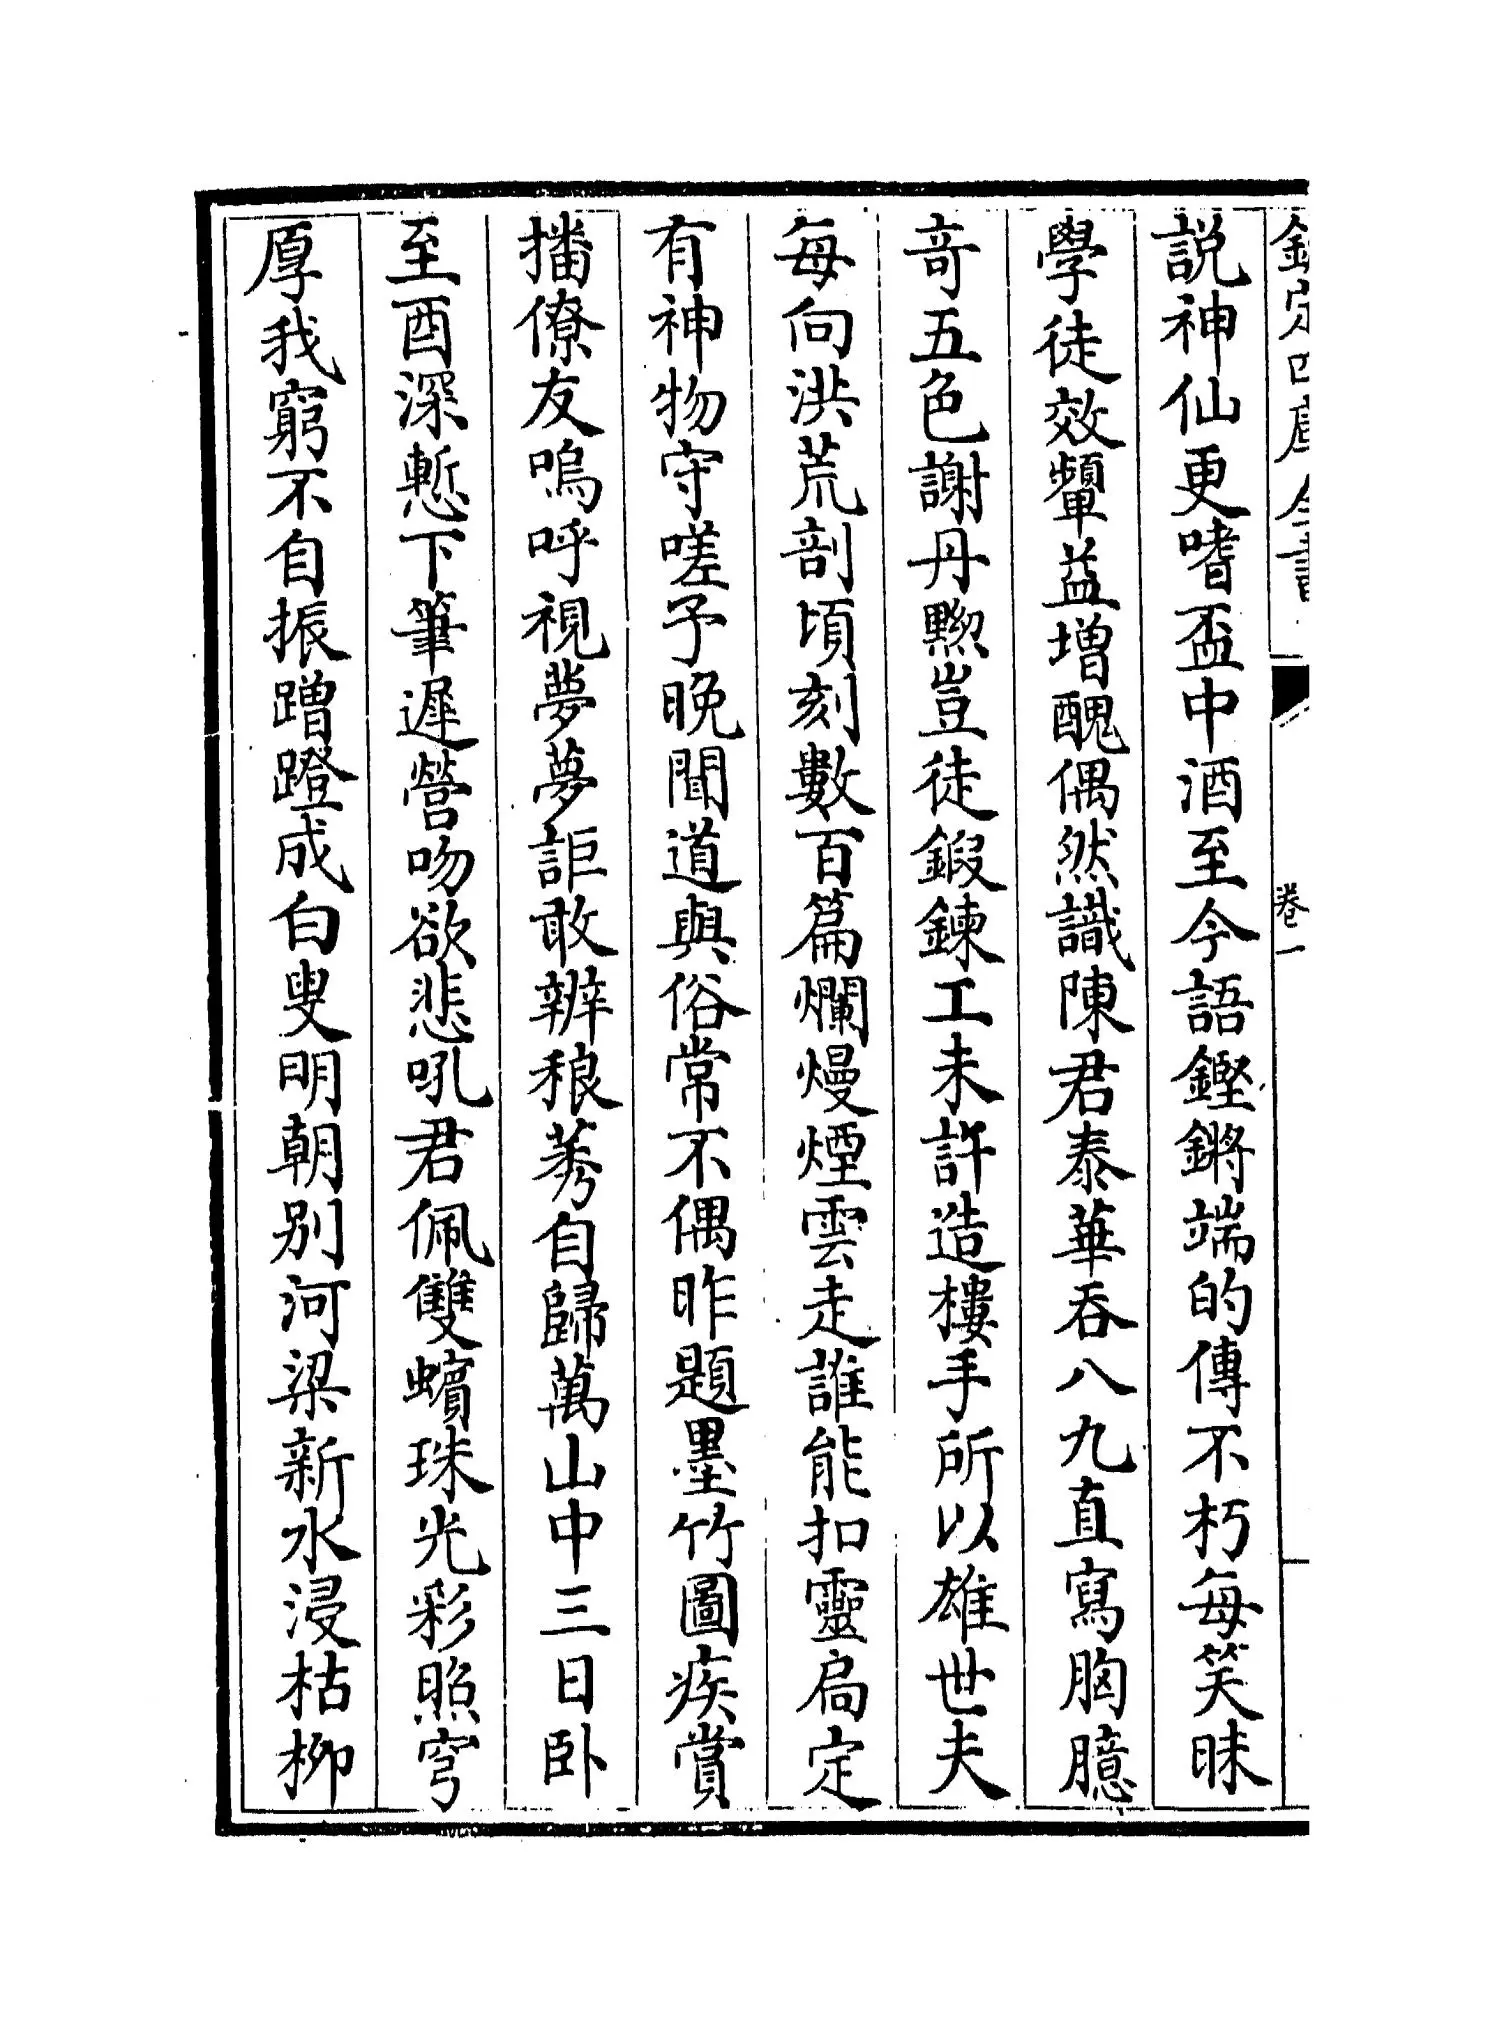 欽定四庫全書
卷一
説神仙更嗜盃中酒至今語鏗鏘端的傳不朽每笑昧
學徒效顰益增醜偶然識陳君泰華吞八九直寫胸臆
竒五色謝丹黝豈徒鍛鍊工未許造樓手所以雄世夫
每向洪荒剖頃刻數百篇爛熳煙雲走誰能扣靈扃定
有神物守嗟予晚聞道與俗常不偶昨題墨竹圖疾賞
播僚友嗚呼視夢夢詎敢辨稂莠自歸萬山中三日卧
至酉深慙下筆遲營吻欲悲吼君佩雙蠙珠光彩照穹
厚我窮不自振蹭蹬成白叟明朝别河梁新水浸枯柳